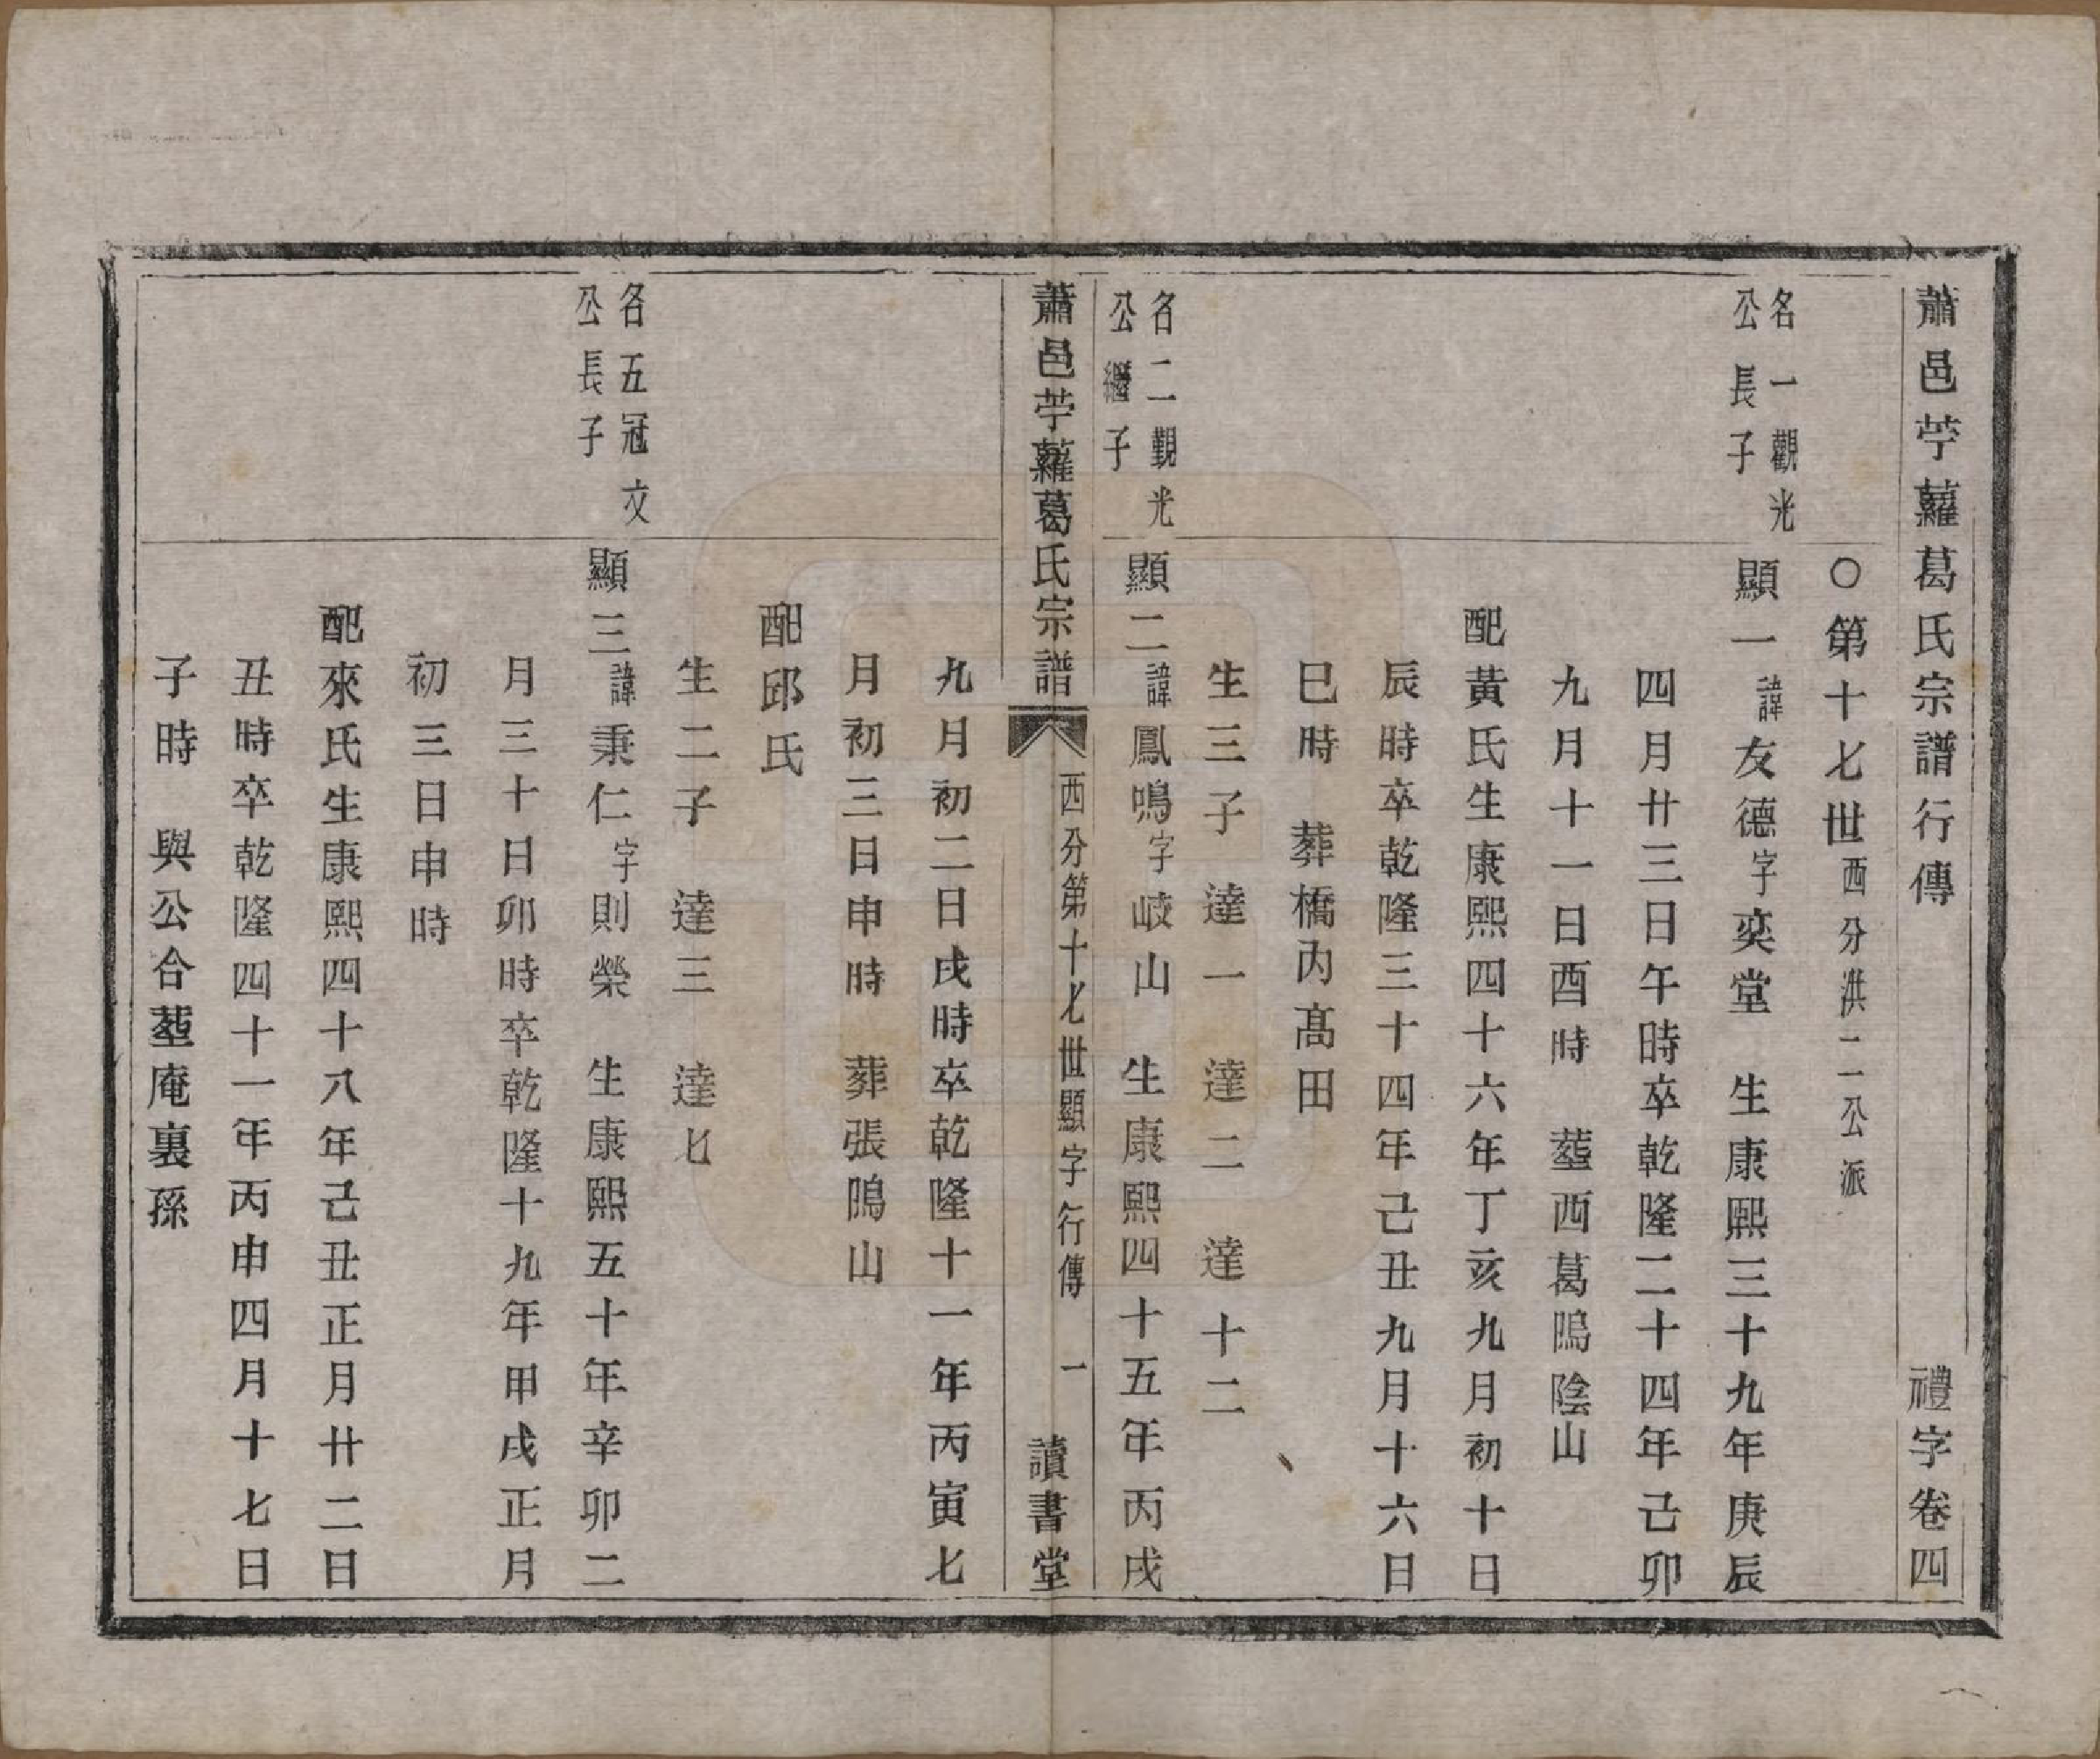 蕭邑苧蘿葛氏宗譜行傳 禮字卷四
○第十七世西分洪二公派
名一觀光
公長子
顯一諱友德字奕堂 生康熙三十九年庚辰
四月廿三日午時卒乾隆二十四年己卯
九月十一日酉時 塟西葛隖陰山
配黃氏生康熙四十六年丁亥九月初十日
辰時卒乾隆三十四年己丑九月十六日
巳時 葬橋內髙田
生三子 達一 達二 達十二
名二觀光
公繼子
顯二諱鳳鳴字岐山 生康熙四十五年丙戌
蕭邑苧蘿葛氏宗譜 西分第十七世顯字行傳 一 讀書堂
九月初二日戌時卒乾隆十一年丙寅七
月初三日申時 葬張隖山
配邱氏
生二子 達三 達七
名五冠文
公長子
顯三諱秉仁字則榮 生康熙五十年辛卯二
月三十日卯時卒乾隆十九年甲戌正月
初三日申時
配來氏生康熙四十八年己丑正月廿二日
丑時卒乾隆四十一年丙申四月十七日
子時 與公合塟庵裏孫